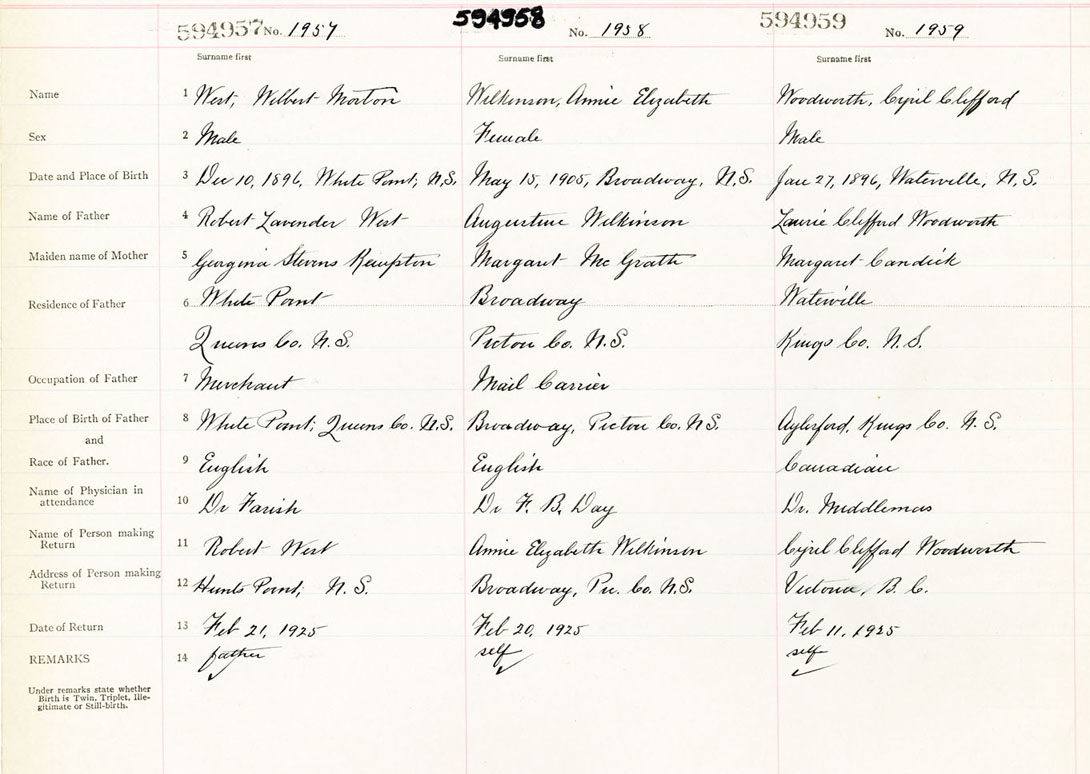 594957 No. 1957 594958 No. 1958 594959 No. 1959
Surname first Surname first Surname first
Name 1 West, Wilbert Morton Wilkinson, Annie Elizabeth Woodworth, Cyril Clifford
Sex 2 Male Female Male
Date and Place of Birth 3 Dec 10, 1896, White Point, N.S. May 15, 1905, Broadway, N.S. Jan 27, 1896, Waterville, N.S.
Name of Father 4 Robert Lavender West Augustine Wilkinson Laurie Clifford Woodworth
Maiden name of Mother 5 Georgina Stevens Kempton Margaret McGrath Margaret Candick
Residence of Father 6 White Point Broadway Waterville
Queens Co. N.S. Pictou Co. N.S. Kings Co. N.S.
Occupation of Father 7 Merchant Mail Carrier
Place of Birth of Father 8 White Point, Queens Co. N.S. Broadway, Pictou Co. N.S. Aylesford, Kings Co. N.S.
and
Race of Father. 9 English English Canadian
Name of Physician in
attendance 10 Dr Farish Dr F. B. Day Dr. Middlemas
Name of Person making
Return 11 Robert West Annie Elizabeth Wilkinson Cyril Clifford Woodworth
Address of Person making
Return 12 Hunts Point, N.S. Broadway, Pic. Co. N.S. Victoria, B.C.
Date of Return 13 Feb 21, 1925 Feb 20, 1925 Feb 11, 1925
REMARKS 14 father self self
Under remarks state whether
Birth is Twin, Triplet, Ille-
gitimate or Still-birth.